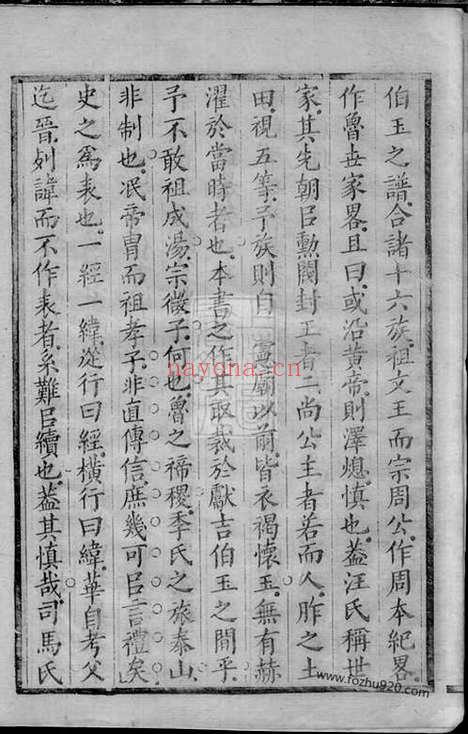 伯玉之譜合諸十六族祖文王而宗周公作周本紀畧
作魯世家畧且曰或沿黄帝則澤熄慎也葢汪氏稱世
家其先朝㠯勲閥封王者二尚公主者若而人胙之土
田視五等予族則自 當廟以前皆衣褐懷玉無有赫
濯於當時者也本書之作其取裁於獻吉伯玉之間乎
予不敢祖成湯宗微子何也魯之禘稷季氏之旅泰山
非制也冺帝胄而祖孝子非直傳信庶幾可㠯言禮矣
史之爲表也一經一緯從行曰經橫行曰緯華自考父
迄晉列諱而不作表者系難㠯續也葢其慎哉司馬氏
nayona.cn
www.fozhu920.com